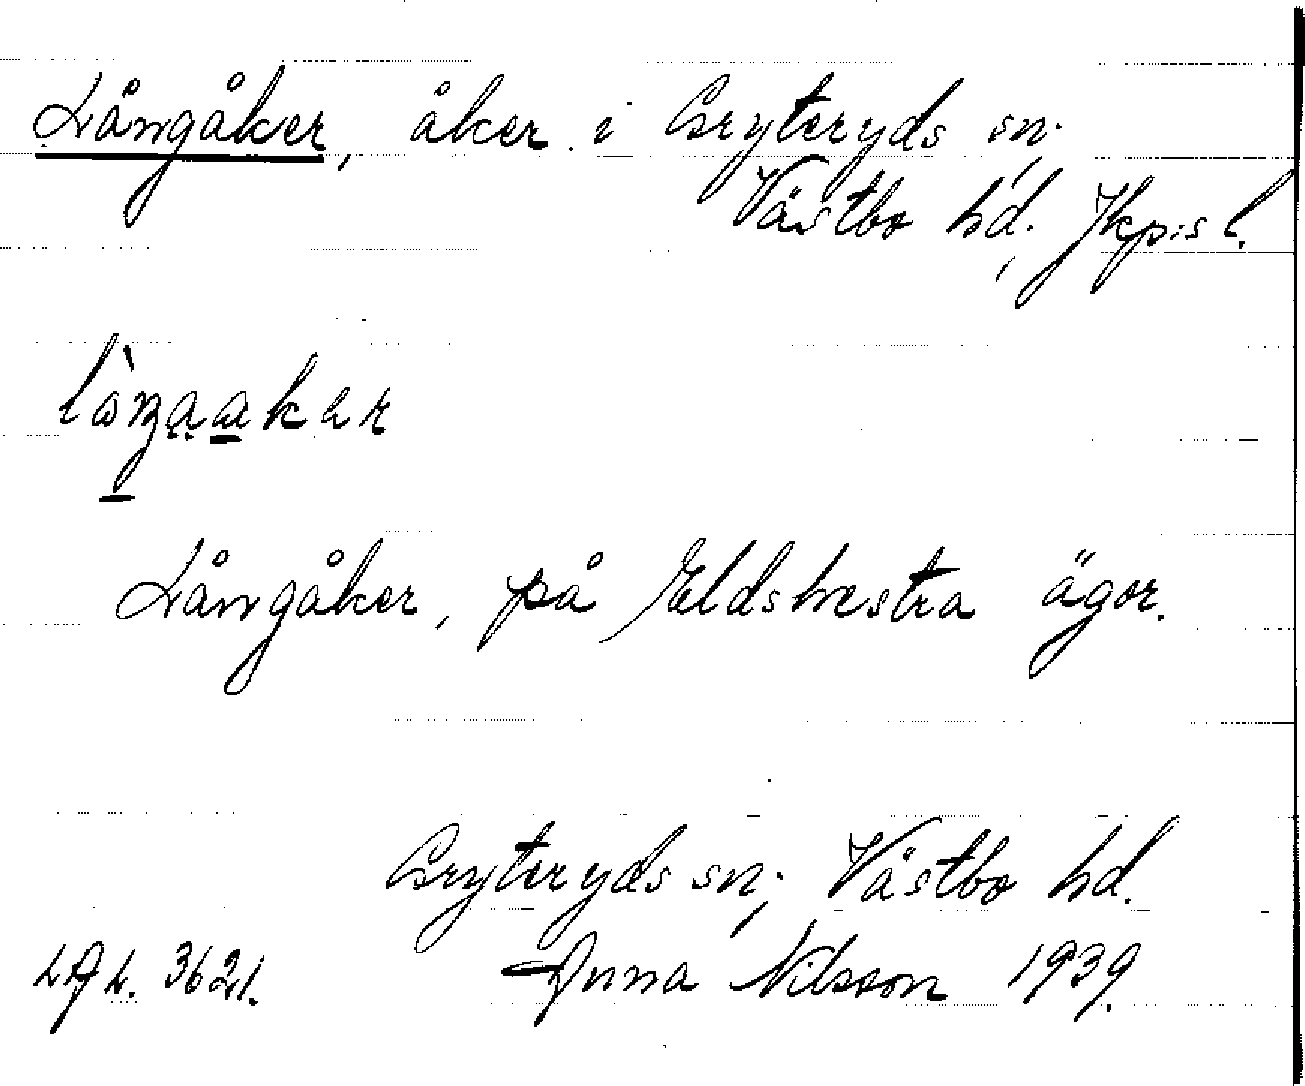 Långåker, åker i Gryteryds sn,
Västbo hd, Jkp:s l.
Långåker, på Eldshestra ägor.
Gryteryds sn, Västbo hd.
3621. Anna Nilsson 1939.